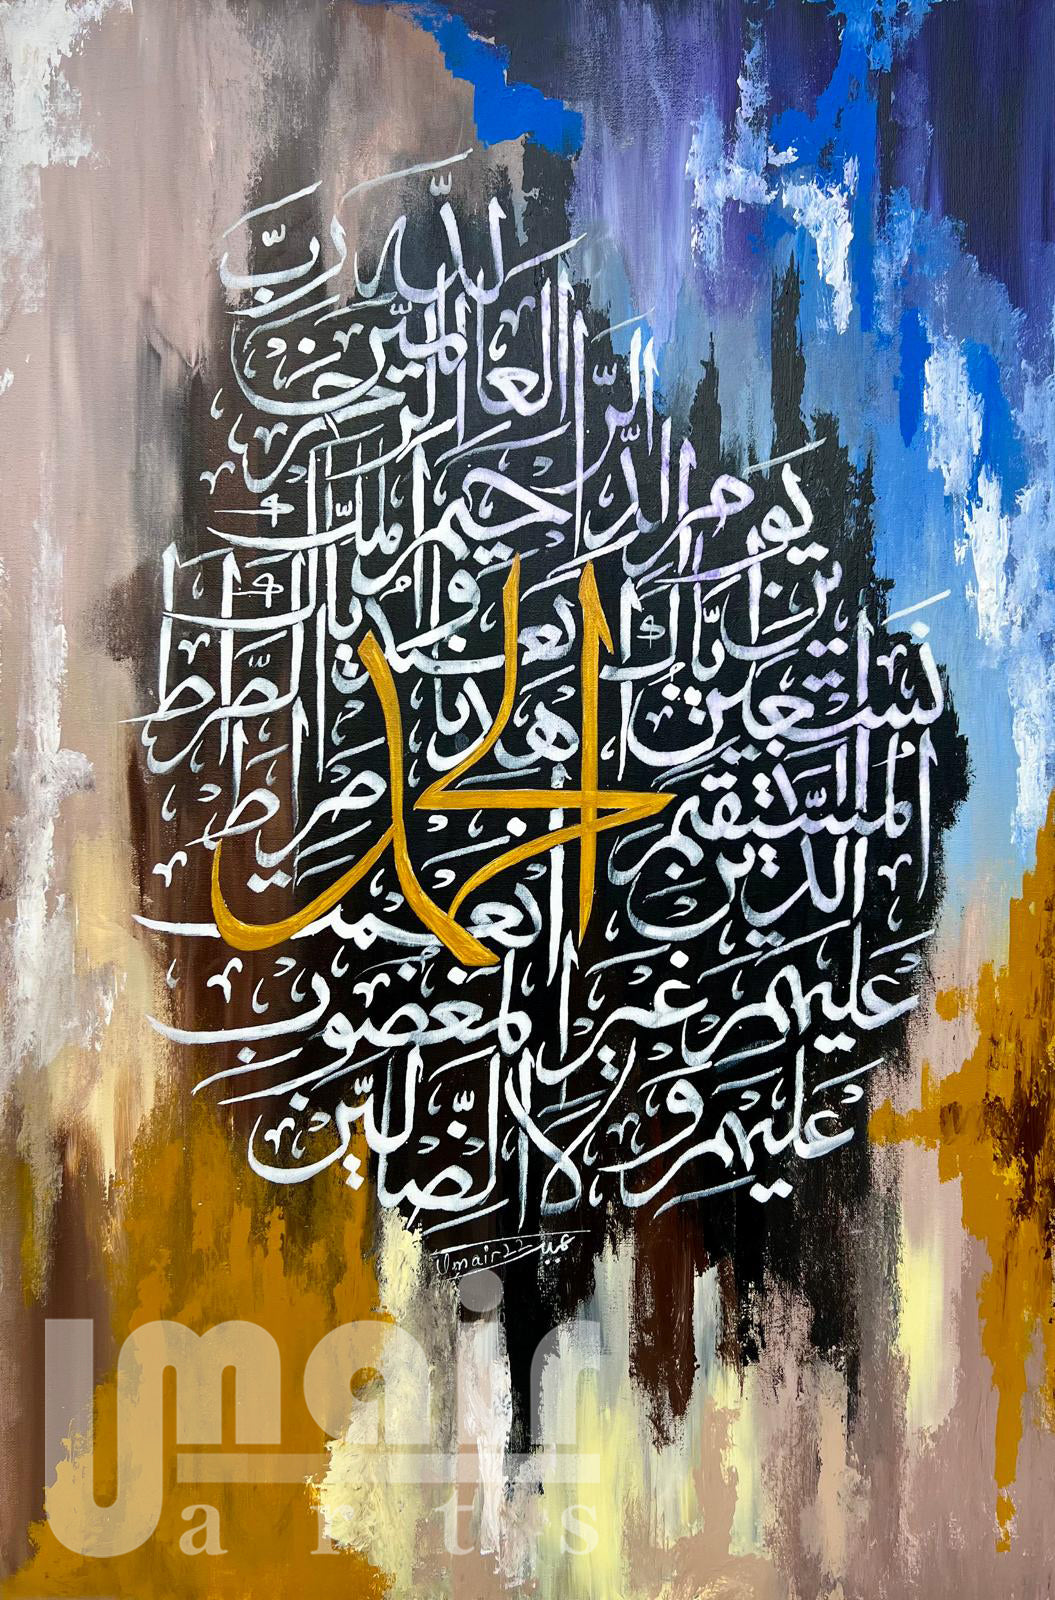 الحمد
لله رب
العالمين الر
حمن الرحيم ملك
يوم الدين اياك نعبد واياك
نستعين اهدنا الصراط
المستقيم صراط
الذين انعمت
عليهم غير المغضوب
عليهم ولا الضالين
Umair 22 عمير
Umair
arts